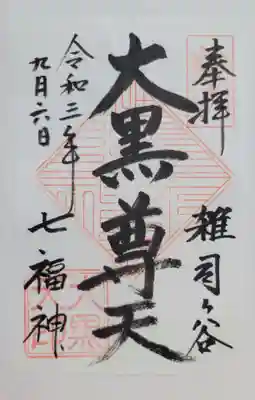 奉拝
雑司ヶ谷
大黒尊天
七福神
令和三年
九月六日